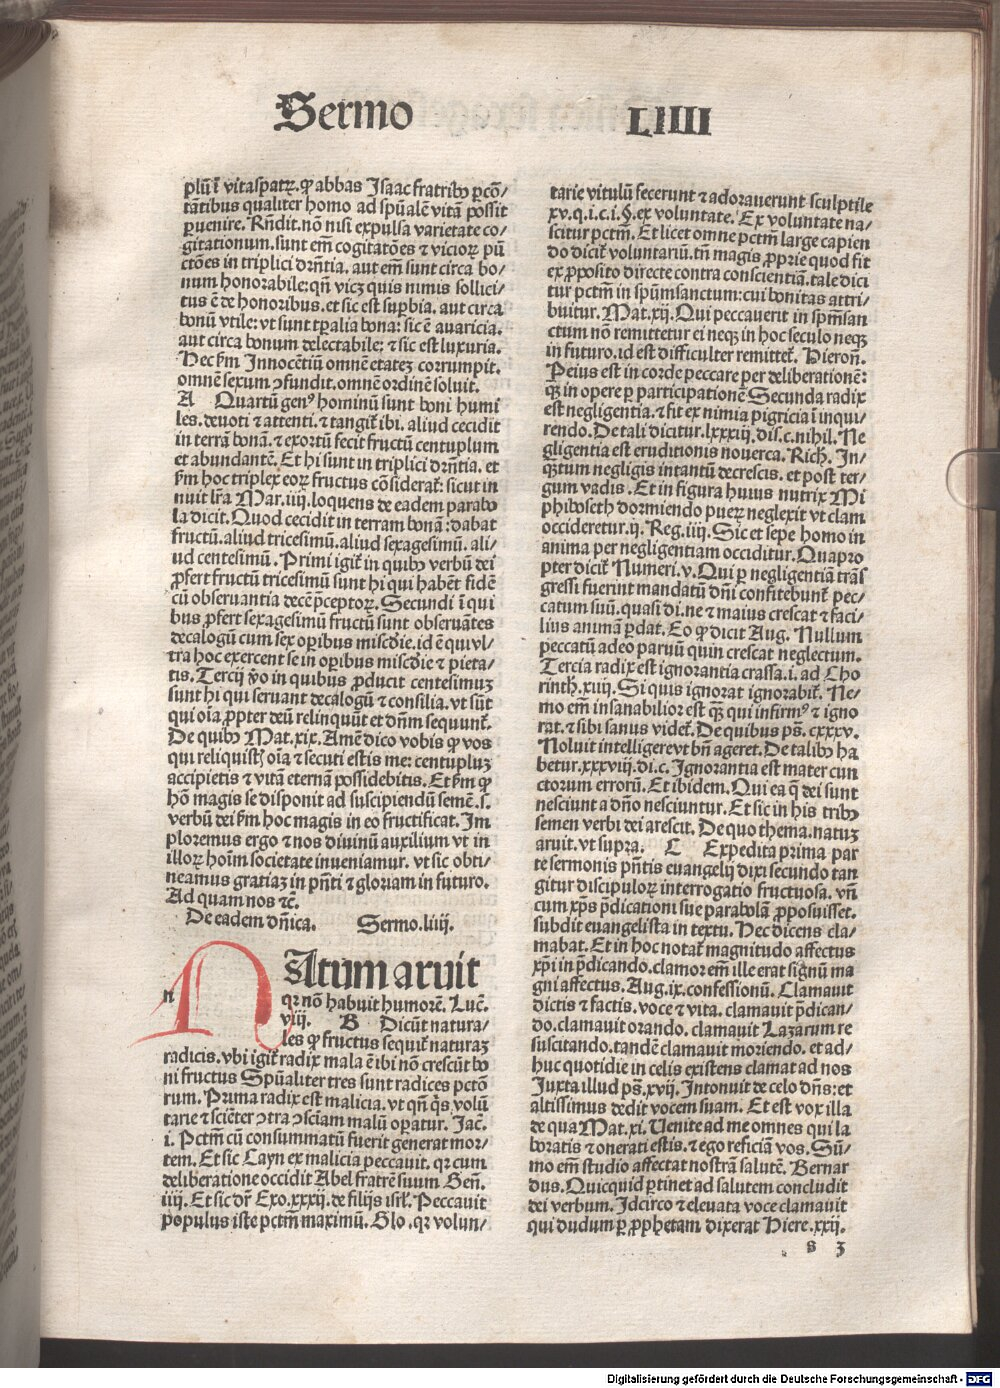 Sermo LIIII
plũ ĩ vitaspatꝝ. ꝙ abbas Isaac fratribꝰ ꝑcõ/
tãtibus qualiter homo ad spũalẽ vitã possit
ꝑuenire. Rñdit. nõ nisi expulsa varietate co/
gitationum. sunt em̃ cogitatões ⁊ vicioꝝ pũ
ctões in triplici drñtia. aut em̃ sunt circa bo/
num honorabile: qñ vicꝫ quis nimis sollici/
tus ẽ de honoribus. et sic est suꝑbia. aut circa
bonũ vtile: vt sunt tꝑalia bona: sic ẽ auaricia.
aut circa bonum delectabile: ⁊ sic est luxuria.
Hec ẜm Innocẽtiũ omnẽ etateꝫ corrumpit.
omnẽ sexum ↄfundit. omnẽ ordinẽ soluit.
A Quartũ genꝰ hominũ sunt boni humi
les. deuoti ⁊ attenti. ⁊ tangit̃ ibi. aliud cecidit
in terrã bonã. ⁊ exortũ fecit fructũ centuplum
et abundantẽ. Et hi sunt in triplici drñtia. et
ẜm hoc triplex eoꝝ fructus cõsiderat̃: sicut in
nuit lr̃a Mar. iiij. loquens de eadem parabo
la dicit. Quod cecidit in terram bonã: dabat
fructũ. aliud tricesimũ. aliud sexagesimũ. ali/
ud centesimũ. Primi igit̃ in quibꝰ verbũ dei
ꝓfert fructũ tricesimũ sunt hi qui habẽt fidẽ
cũ obseruantia decẽ p̃ceptoꝝ. Secundi ĩ qui
bus ꝓfert sexagesimũ fructũ sunt obseruãtes
decalogũ cum sex oꝑibus miscdie. id ẽ qui vl/
tra hoc exercent se in oꝑibus miscdie ⁊ pieta/
tis. Tercij ṽo in quibus ꝓducit centesimuꝫ
sunt hi qui seruant decalogũ ⁊ consilia. vt sũt
qui oĩa ꝓpter deũ relinquũt et dñm sequunt̃.
De quibꝰ Mat. xix. Amẽ dico vobis ꝙ vos
qui reliquist̃ oĩa ⁊ secuti estis me: centupluꝫ
accipietis ⁊ vitã eternã possidebitis. Et ẜm ꝙ
hõ magis se disponit ad suscipiendũ semẽ. s.
verbũ dei ẜm hoc magis in eo fructificat. Im
ploremus ergo ⁊ nos diuinũ auxilium vt in
illoꝝ hoĩm societate inueniamur. vt sic obti/
neamus gratiaꝫ in pñti ⁊ gloriam in futuro.
Ad quam nos ⁊c̃.
De eadem dñica. Sermo. liiij.
n
NAtum aruit
qꝛ nõ habuit humorẽ. Luc̃.
viij. B Dicũt natura/
les ꝙ fructus sequit̃ naturaꝫ
radicis. vbi igit̃ radix mala ẽ ibi nõ crescũt bo
ni fructus Spũaliter tres sunt radices pctõ
rum. Prima radix est malicia. vt qñ q̃s volũ
tarie ⁊ sciẽter ↄtra ↄsciam malũ oꝑatur. Jac̃.
i. Pctm̃ cũ consummatũ fuerit generat mor/
tem. Et sic Cayn ex malicia peccauit. qꝛ cum
deliberatione occidit Abel fratrẽ suum Geñ.
iiij. Et sic dr̃ Exo. xxxij. de filijs isrl̃. Peccauit
populus iste pctm̃ maximũ. Glo. qꝛ volun/
tarie vitulũ fecerunt ⁊ adorauerunt sculptile
xv. q. i. c. i. §. ex voluntate. Ex voluntate na/
scitur pctm̃. Et licet omne pctm̃ large capien
do dicit̃ voluntariũ. tñ magis ꝓprie quod fit
ex ꝓposito directe contra conscientiã. tale dici
tur pctm̃ in spũmsanctum: cui bonitas attri/
buitur. Mat. xij. Qui peccauerit in spm̃san
ctum nõ remittetur ei neqꝫ in hoc seculo neqꝫ
in futuro. id est difficulter remittet̃. Hieroñ.
Peius est in corde peccare per deliberationẽ:
qꝫ in opere ꝑ participationẽ Secunda radix
est negligentia. ⁊ fit ex nimia pigricia ĩ inqui/
rendo. De tali dicitur. lxxxiij. dis. c. nihil. Ne
gligentia est eruditionis nouerca. Rich̃. In/
qꝫtum negligis intantũ decrescis. et post ter/
gum vadis. Et in figura huius nutrix Mi
phiboseth dormiendo pueꝝ neglexit vt clam
occideretur. ij. Reg. iiij. Sic et sepe homo in
anima per negligentiam occiditur. Quapro
pter dicit̃ Numeri. v. Qui ꝑ negligentiã trãs
gressi fuerint mandatũ dñi confitebunt̃ pec/
catum suũ. quasi di. ne ⁊ maius crescat ⁊ faci/
lius animã ꝑdat. Eo ꝙ dicit Aug. Nullum
peccatũ adeo paruũ quin crescat neglectum.
Tercia radix est ignorantia crassa. i. ad Cho
rinth. xiiij. Si quis ignorat ignorabit̃. Ne/
mo em̃ insanabilior est qꝫ qui infirmꝰ ⁊ igno
rat. ⁊ sibi sanus videt̃. De quibus pš. cxxxv.
Noluit intelligerevt bñ ageret. De talibꝰ ha
betur. xxxviij. di. c. Ignorantia est mater cun
ctorum errorũ. Et ibidem. Qui ea q̃ dei sunt
nesciunt a dño nesciuntur. Et sic in his tribꝰ
semen verbi dei arescit. De quo thema. natuꝫ
aruit. vt supra. C Expedita prima par
te sermonis pñtis euangelij dixi secundo tan
gitur discipuloꝝ interrogatio fructuosa. vñ
cum xp̃s p̃dicationi sue parabolã ꝓposuisset.
subdit euangelista in textu. Hec dicens cla/
mabat. Et in hoc notat̃ magnitudo affectus
xp̃i in p̃dicando. clamor em̃ ille erat signũ ma
gni affectus. Aug. ix. confessionũ. Clamauit
dictis ⁊ factis. voce ⁊ vita. clamauit p̃dican/
do. clamauit orando. clamauit Lazarum re
suscitando. tandẽ clamauit moriendo. et ad/
huc quotidie in celis existens clamat ad nos
Juxta illud pš. xvij. Intonuit de celo dñs: et
altissimus dedit vocem suam. Et est vox illa
de qua Mat. xi. Uenite ad me omnes qui la
boratis ⁊ onerati estis. ⁊ ego reficiã vos. Sũ/
mo em̃ studio affectat nostrã salutẽ. Bernar
dus. Quicquid ꝑtinet ad salutem concludit
dei verbum. Idcirco ⁊ eleuata voce clamauit
qui dudum ꝑ ꝓphetam dixerat Hiere. xxij.
s 3
Digitalisierung gefördert durch die Deutsche Forschungsgemeinschaft - DFG